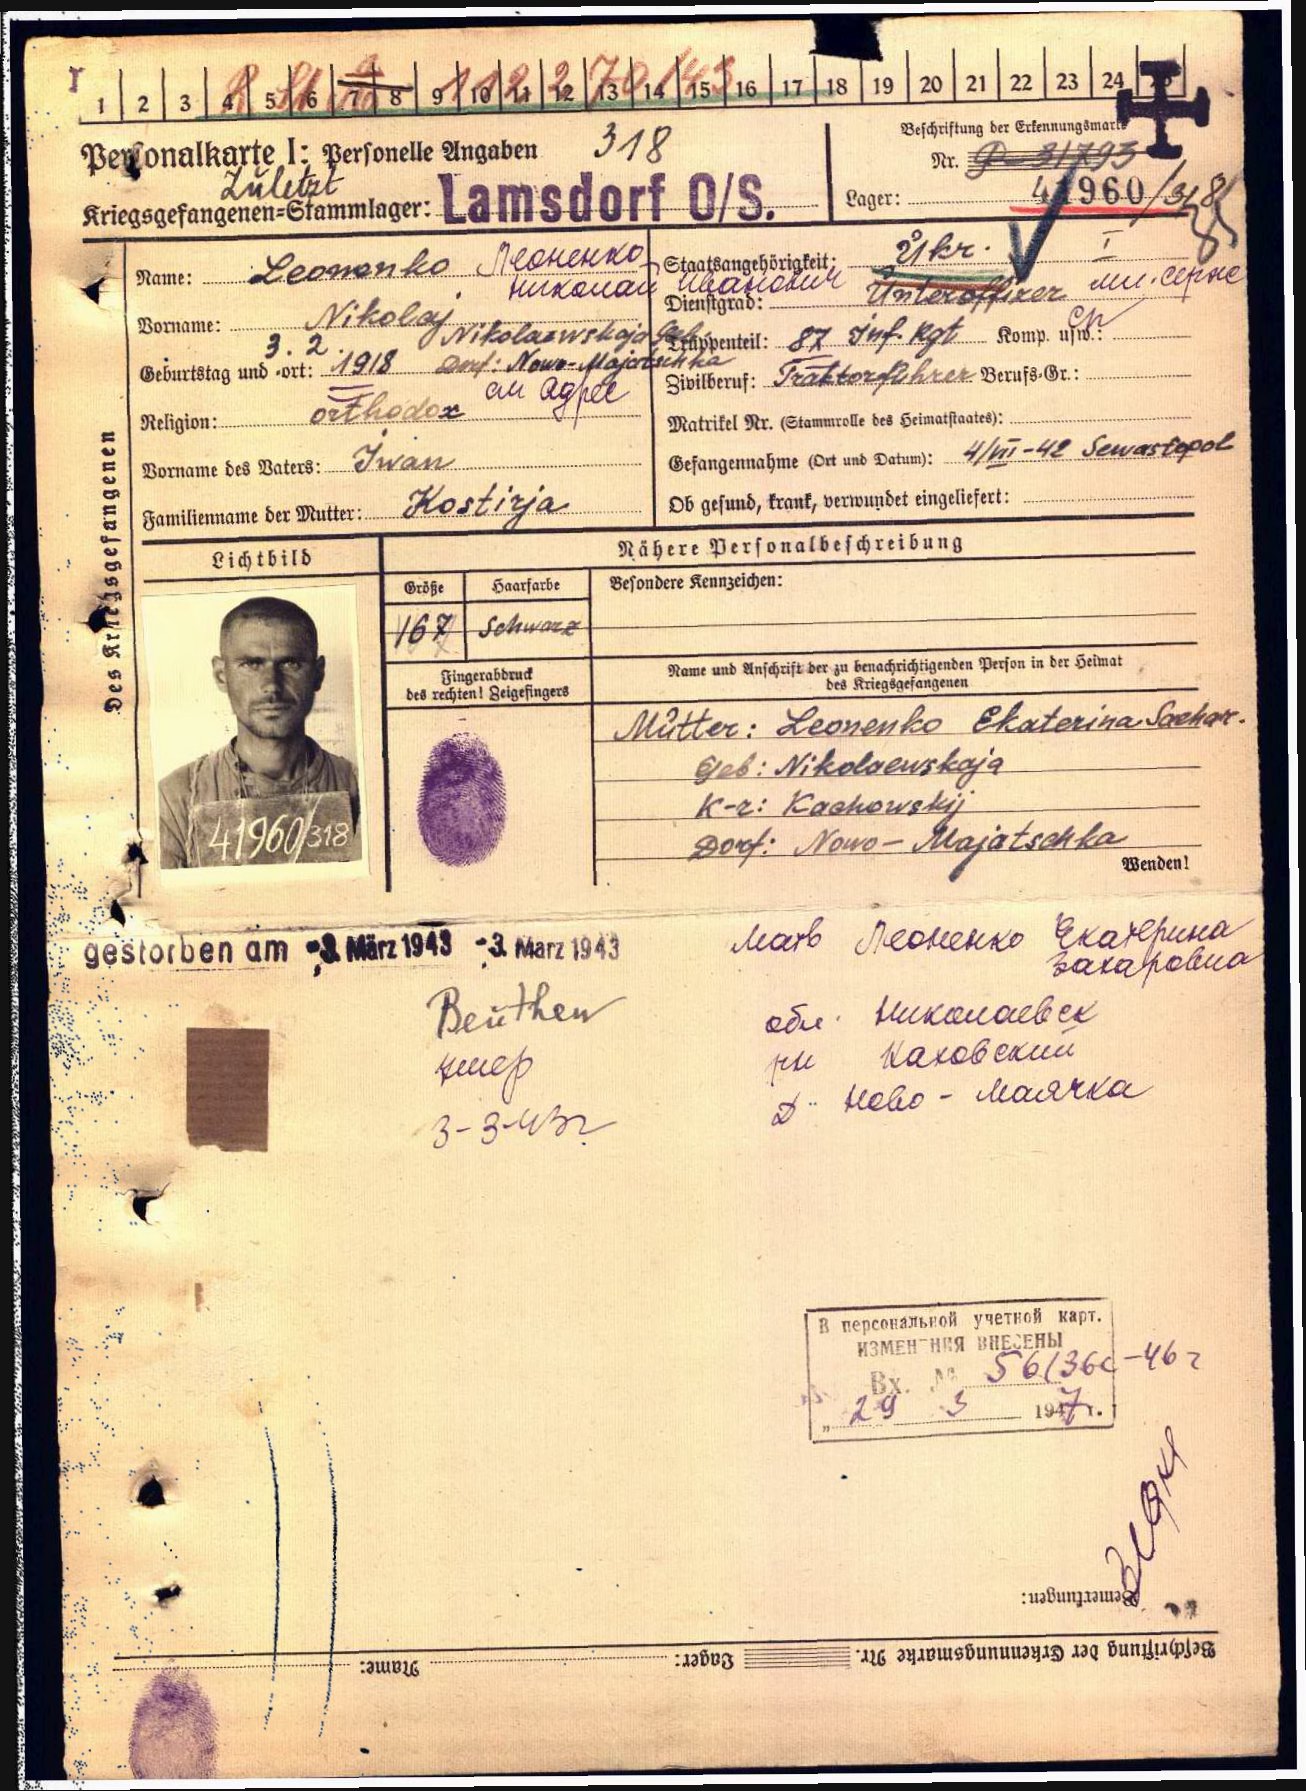 1 2 3 4 5 6 7 8 9 10 11 12 13 14 15 16 17 18 19 20 21 22 23 24
Personalkarte I: Personelle Angaben 318
Beschriftung der Erkennungsmarke
Nr. 31793
Zuletzt
Kriegsgefangenen=Stammlager: Lamsdorf O/S.
Lager: 41960/318
Des Kriegsgefangenen
Name: Leonenko Леоненко
Николай Иванович
Vorname: Nikolaj
Nikolaewskaja Geb.
Geburtstag und -ort: 3. 2. 1918 Dorf: Nowo-Majatschka
Religion: orthodox
Vorname des Vaters: Iwan
Familienname der Mutter: Kostirja
Staatsangehörigkeit: Ukr. I
Dienstgrad: Unteroffizer мл. серж
Truppenteil: 87 Inf. Rgt Komp. usw.:
Zivilberuf: Traktorführer Berufs-Gr.:
Matrikel Nr. (Stammrolle des Heimatstaates):
Gefangennahme (Ort und Datum): 4/VII-42 Sewastopol
Ob gesund, krank, verwundet eingeliefert:
Lichtbild
Nähere Personalbeschreibung
Größe
Haarfarbe
Besondere Kennzeichen:
167
Schwarz
Fingerabdruck
des rechten! Zeigefingers
Name und Anschrift der zu benachrichtigenden Person in der Heimat
des Kriegsgefangenen
41960/318
Mutter: Leonenko Ekaterina Sachar.
Geb: Nikolaewskaja
K-r: Kachowskij
Dorf: Nowo-Majatschka
Wenden!
gestorben am -3. März 1943 -3. März 1943
Beuthen
умер
3-3-43г
Мать Леоненко Екатерина
Захаровна
обл. Николаевск
рн Каховский
д. Ново-Маячка
В персональной учетной карт.
ИЗМЕНЕНИЯ ВНЕСЕНЫ
Вх. № 56/36с-46г
„29 3 1947 г.
Bemerkungen:
Beschriftung der Erkennungsmarke Nr. Lager: Name: